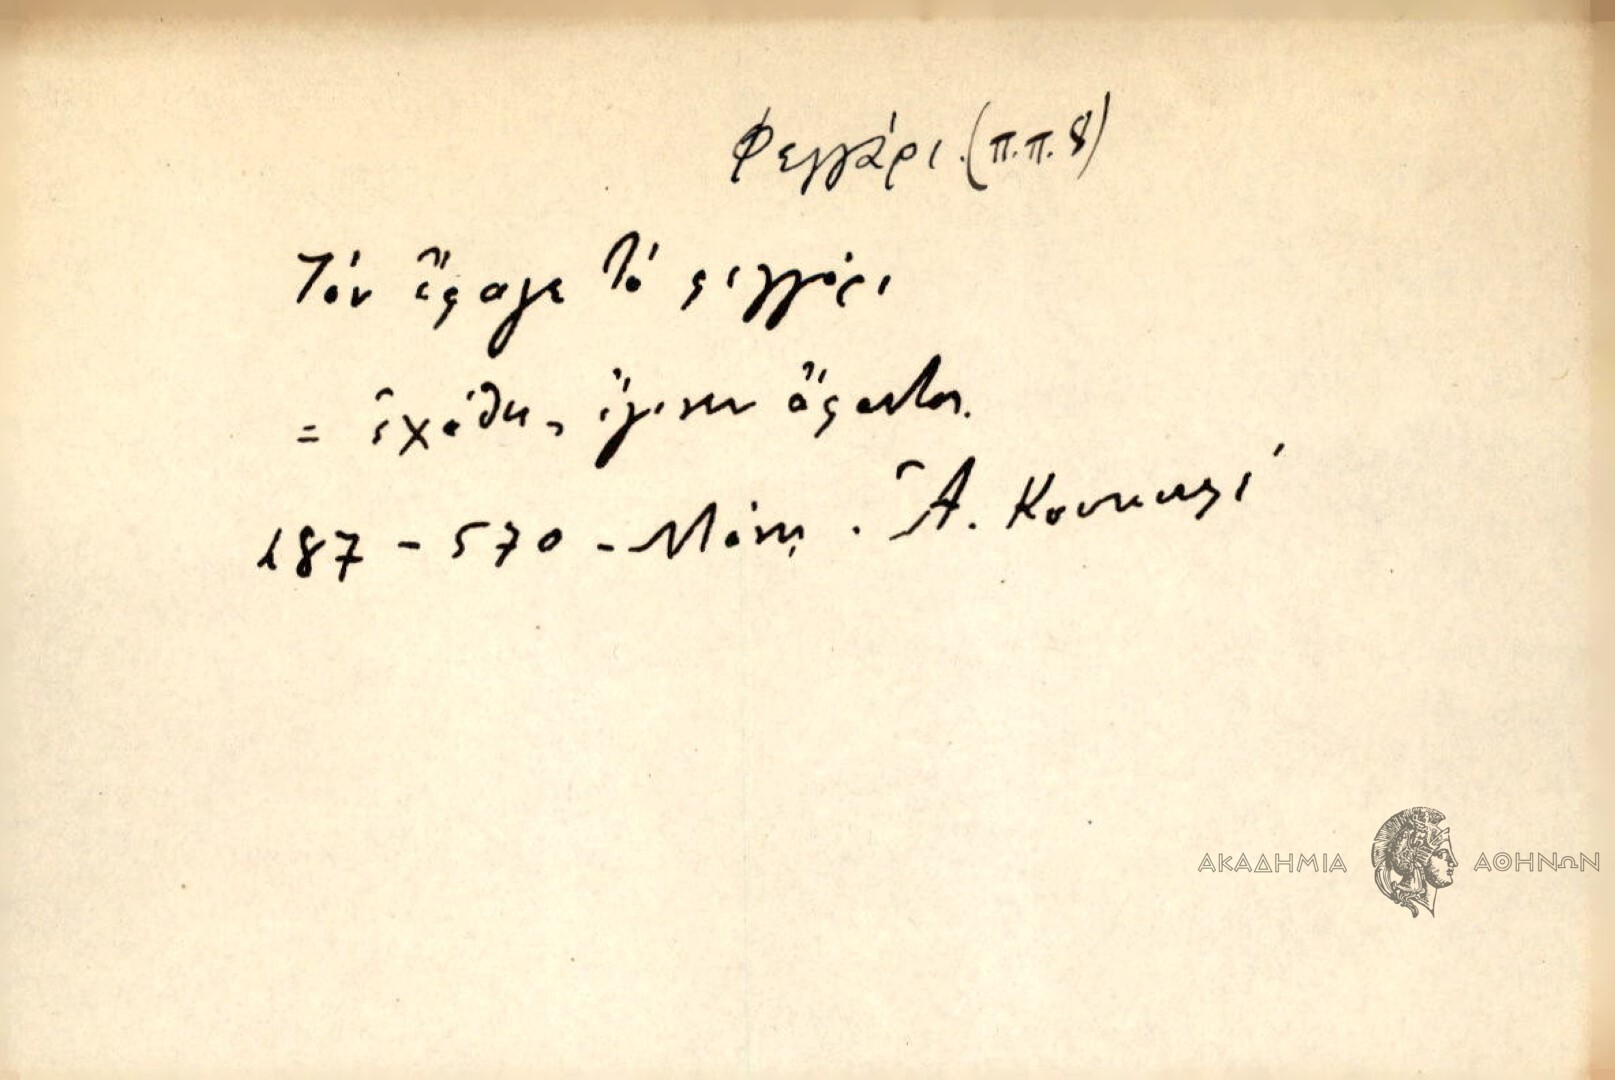 Φεγγάρι. (π.π. 8)
Τόν ἔφαγε τό φεγγάρι
= ἐχάθη, ἔγινεν ἄφαντος.
187 - 570 - Μάνη. Ἀ.
ΑΚΑΔΗΜΙΑ ΑΘΗΝΩΝ